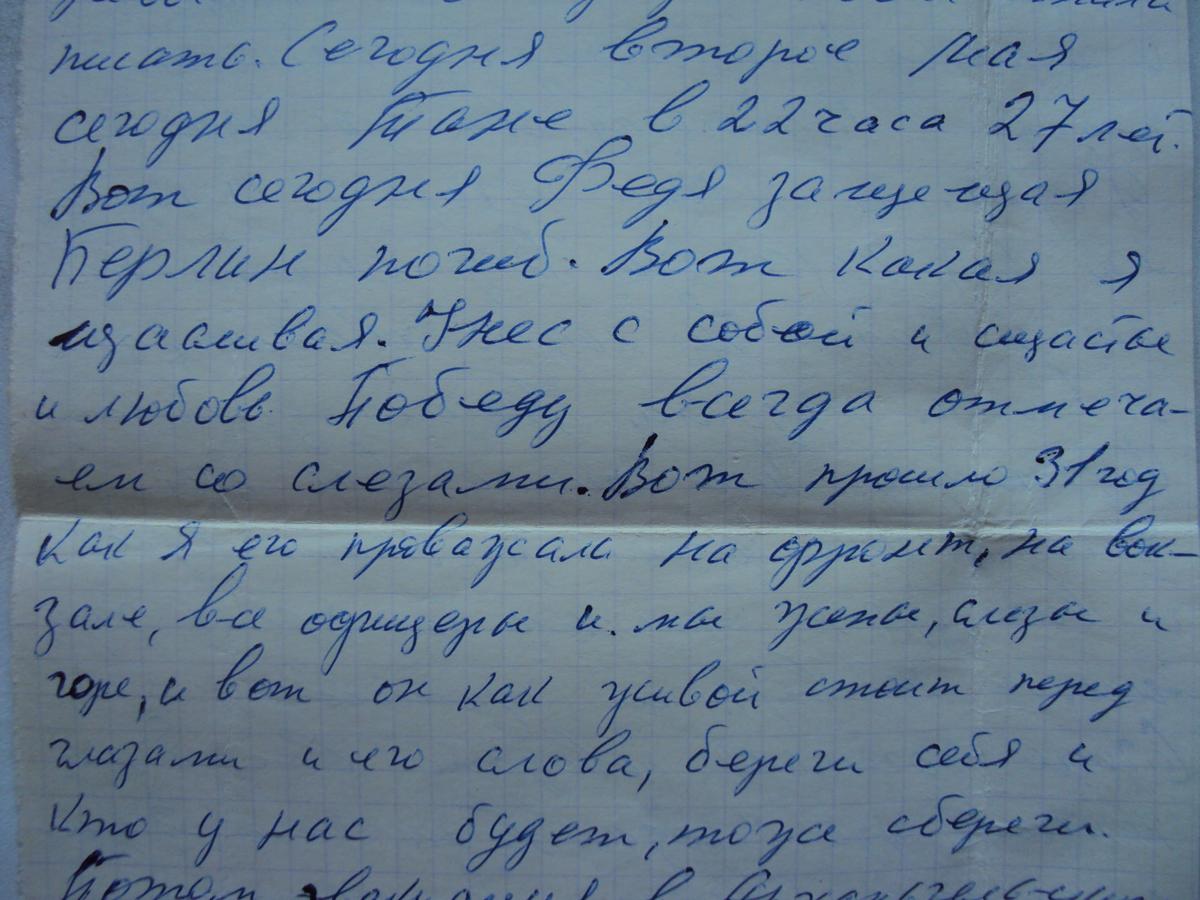 писать. Сегодня второе мая
сегодня Тане в 22 часа 27 лет.
Вот сегодня Федя защещая
Берлин погиб. Вот какая я
щасливая. Унес с собой и щастье
и любовь. Победу всегда отмеча-
ем со слезами. Вот прошло 31 год
как я его праважала на фронт, на вок-
зале, все офицеры и мы жены, слезы и
горе, и вот он как живой стоит перед
глазами и его слова, береги себя и
кто у нас будет, тоже сбереги.
Потом в